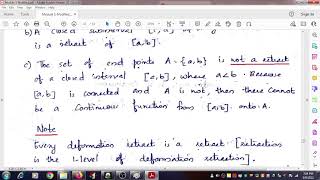 b) A closed subinterval
is a retract of [a,b].
c) The set of end points A = {a,b} is not a retract
of a closed interval [a,b], where a<b. Because
[a,b] is connected and A is not then there cannot
be a continuous function from [a,b] onto A.
Note
Every deformation retract is a retract [retraction
is the 1-level of deformation retraction].